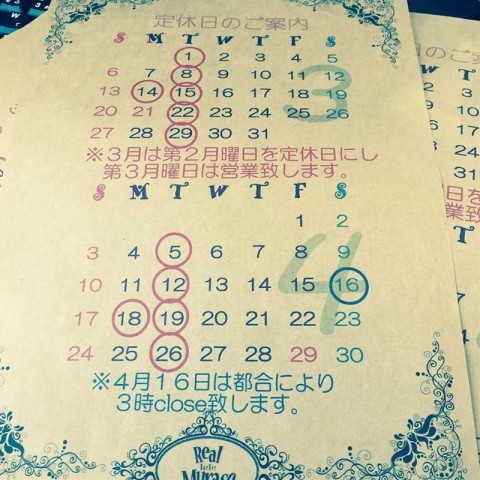 定休日のご案内
S M T W T F S
1 2 3 4 5
6 7 8 9 10 11 12
13 14 15 16 17 18 19
20 21 22 23 24 25 26
27 28 29 30 31
3
※３月は第２月曜日を定休日にし
第３月曜日は営業致します。
S M T W T F S
1 2
3 4 5 6 7 8 9
10 11 12 13 14 15 16
17 18 19 20 21 22 23
24 25 26 27 28 29 30
4
※４月１６日は都合により
３時close致します。
Real
Barber